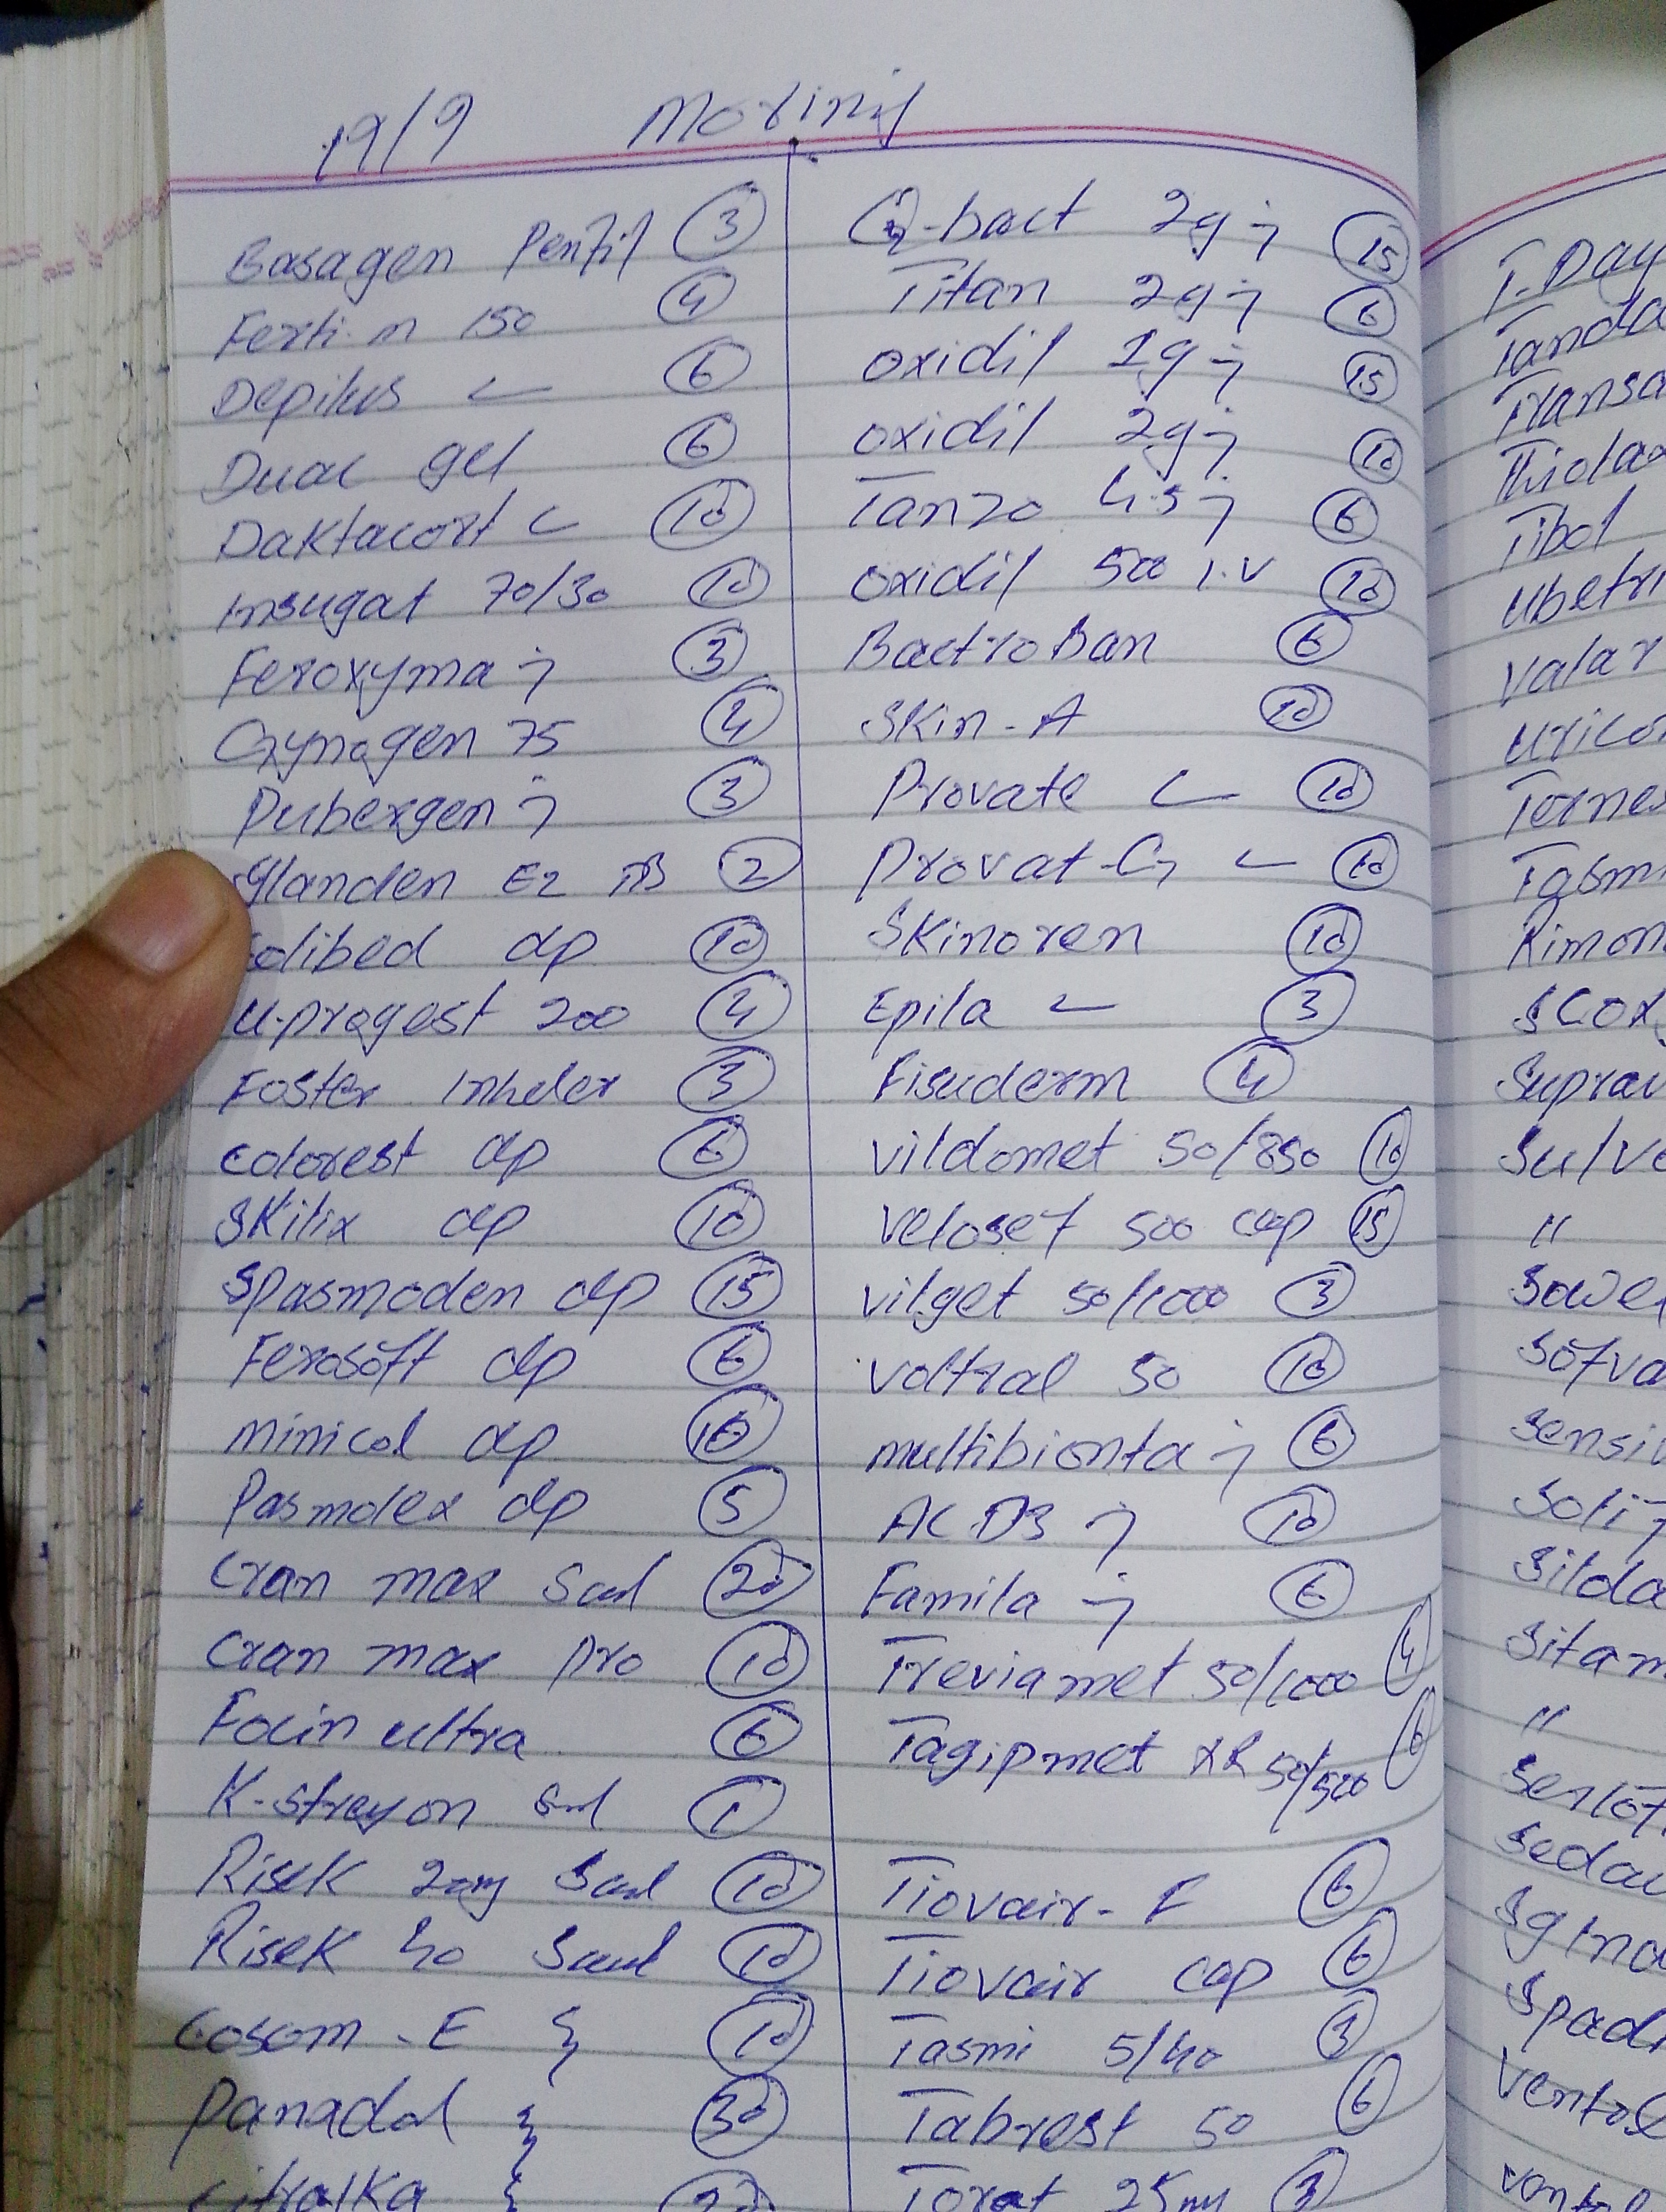 19/9 Morinij
Basagen Penfil 3
Ferti-m 150 4
Depilus 6
Duac gel 6
Daktacort c 10
Insugat 70/30 10
Feroxyma j 3
Gynogen 75 4
Pubergen j 3
Glanden E2 2
dp 10
U-progest 200 4
Foster Inheler 3
Colorest dp 6
Skilix dp 10
Spasmoden dp 15
Ferosoft dp 6
Minicol dp 10
Pasmolex dp 5
Cran max Saul 20
Cran max Pro 10
Focin ultra 6
1
Risek 20mg Saul 10
Risek 40 Saul 10
Cosom-E 10
Panadol 30
Citralka
Q-bact 2g j 15
Titan 2g j 6
Oxidil 1g j 15
Oxidil 2g j 10
Tanzo 4.5 j 6
Oxidil 500 I.V 10
BactroBan 6
Skin-A 10
Provate 10
Provat-G 10
Skinoren 10
Epila 3
Fisuderm 4
Vildomet 50/850 10
Velosef 500 cap 15
Vilget 50/1000 3
Voltral 50 10
Multibionta j 6
AC D3 j 10
Famila j 6
Treviamet 50/1000 4
Tagipmet XR 50/500 6
Tiovair-F 6
Tiovair cap 6
Tasmi 5/40 3
Tabrest 50 6
Torat 25mg 3
T-Day
Tanda
Transa
Thiola
Tibol
Ubetri
Valar
Urico
Torne
Tasmi
Rimon
Scox
Suprav
Sulve
"
Sowe
Sofva
Sensi
Solif
Silda
Sitam
"
Serlof
Seda
Spadi
Ventol
Ventol